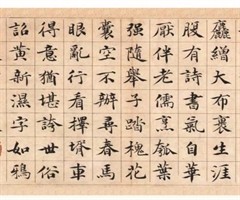 麤繒大布裹生涯
腹有詩書氣自華
厭伴老儒烹瓠葉
强隨舉子踏槐花
囊空不辦尋春馬
眼亂行看擇壻車
得意猶堪誇世俗
詔黃新濕字如鴉